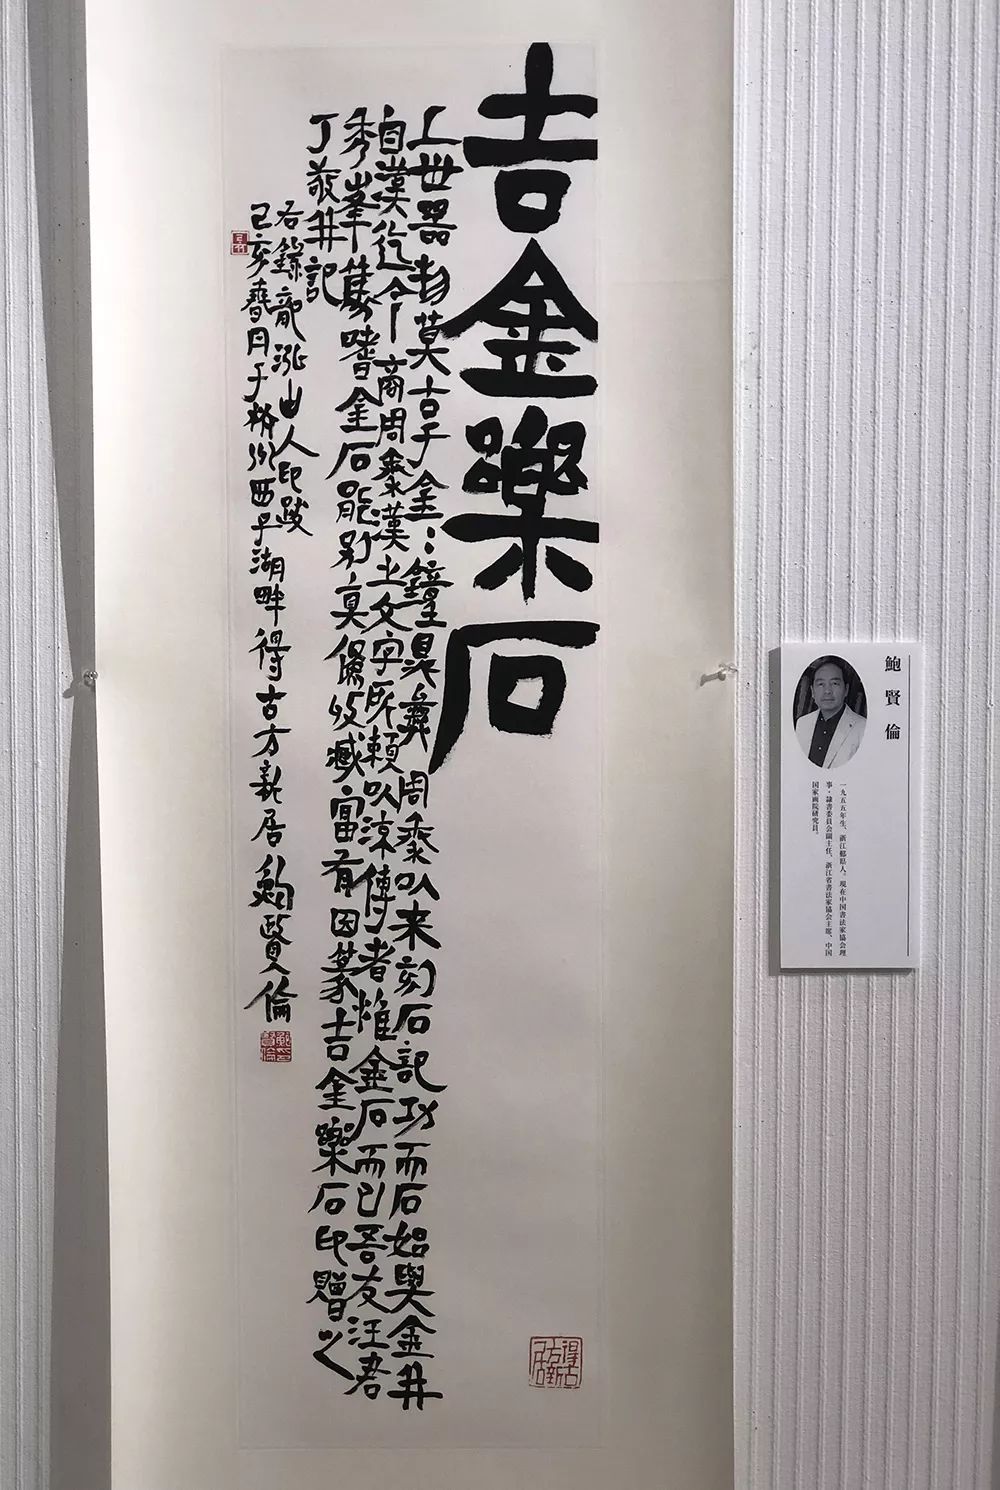 吉金樂石
上世器物莫吉于金〻鐘鼎彝周秦以來刻石記功而石始與金并
自漢迄今商周秦漢之文字所賴以流傳者惟金石而已吾友汪君
秀峯雋嗜金石能別真偽收藏富有因篆吉金樂石印贈之
丁敬并記
右錄龍泓山人印跋
己亥春月于杭州西子湖畔得古方新居鮑賢倫
得古方新居
鮑賢倫
一九五五年生、浙江鄞県人。現在中国書法家協会理
事・隷書委員会副主任、浙江省書法家協会主席、中国
国家画院研究員。